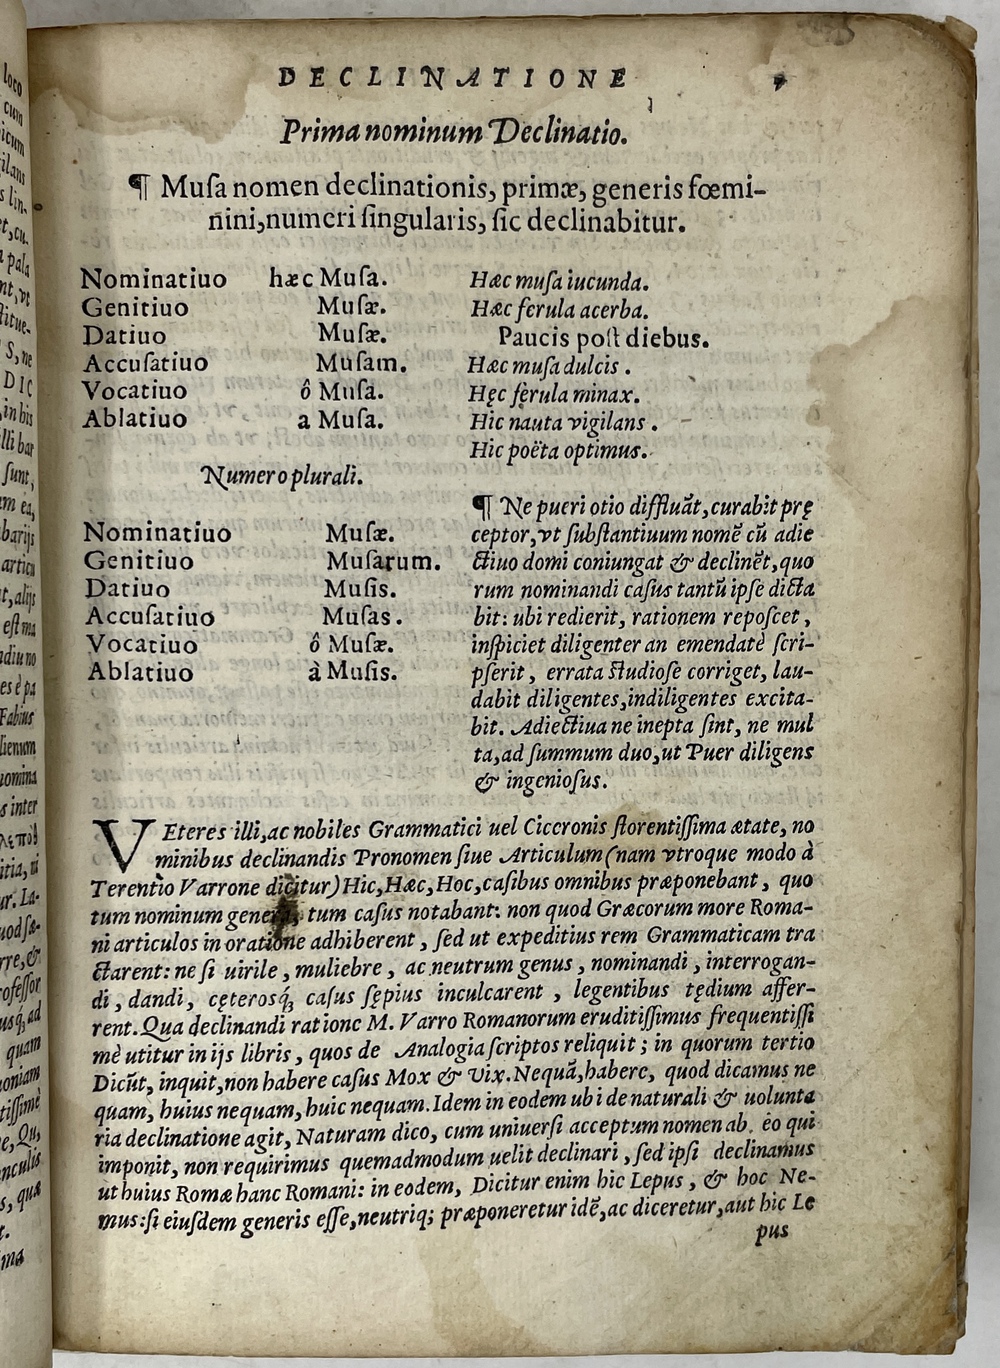 DECLINATIONE
Prima nominum Declinatio.
¶ Muſa nomen declinationis, primæ, generis fœmi-
nini, numeri ſingularis, ſic declinabitur.
Nominatiuo hæc Muſa.
Genitiuo Muſæ.
Datiuo Muſæ.
Accuſatiuo Muſam.
Vocatiuo ô Muſa.
Ablatiuo a Muſa.
Numero plurali.
Nominatiuo Muſæ.
Genitiuo Muſarum.
Datiuo Muſis.
Accuſatiuo Muſas.
Vocatiuo ô Muſæ.
Ablatiuo à Muſis.
Hæc muſa iucunda.
Hæc ferula acerba.
Paucis poſt diebus.
Hæc muſa dulcis.
Hęc ferula minax.
Hic nauta vigilans.
Hic poëta optimus.
¶ Ne pueri otio diffluāt, curabit prę
ceptor, vt ſubſtantiuum nomē cū adie
ctiuo domi coniungat & declinēt, quo
rum nominandi caſus tantū ipſe dicta
bit: ubi redierit, rationem repoſcet,
inſpiciet diligenter an emendatè ſcri-
pſerit, errata ſtudioſe corriget, lau-
dabit diligentes, indiligentes excita-
bit. Adiectiua ne inepta ſint, ne mul
ta, ad ſummum duo, ut Puer diligens
& ingenioſus.
VEteres illi, ac nobiles Grammatici uel Ciceronis florentiſſima ætate, no
minibus declinandis Pronomen ſiue Articulum (nam vtroque modo à
Terentio Varrone dicitur) Hic, Hæc, Hoc, caſibus omnibus præponebant, quo
tum nominum genera, tum caſus notabant: non quod Græcorum more Roma-
ni articulos in oratione adhiberent, ſed ut expeditius rem Grammaticam tra
ctarent: ne ſi uirile, muliebre, ac neutrum genus, nominandi, interrogan-
di, dandi, cęterosq́; caſus ſępius inculcarent, legentibus tędium affer-
rent. Qua declinandi ratione M. Varro Romanorum eruditiſſimus frequentiſſi
mè utitur in ijs libris, quos de Analogia ſcriptos reliquit; in quorum tertio
Dicūt, inquit, non habere caſus Mox & Vix. Nequā, habere, quod dicamus ne
quam, huius nequam, huic nequam. Idem in eodem ubi de naturali & uolunta
ria declinatione agit, Naturam dico, cum uniuerſi acceptum nomen ab eo qui
imponit, non requirimus quemadmodum uelit declinari, ſed ipſi declinamus
ut huius Romæ hanc Romani: in eodem, Dicitur enim hic Lepus, & hoc Ne-
mus: ſi eiuſdem generis eſſe, neutriq; præponeretur idē, ac diceretur, aut hic Le
pus
loco
cum
icum
ilans
lin-
et, cu-
pala
nt, vt
titue-
S, ne
DIC
in his
lli bar
ſunt,
um ea,
barijs
articu
t, alijs
eſt ma
diu no
es è pa
Fabius
lienum
nomina
s inter
itia, ni
ur. La-
uod ſæ-
rre, &
rofeſſor
usq́; ad
quam
oniam
tiſſimè
e, Qu,
nculis
s, quæ
t.
ma